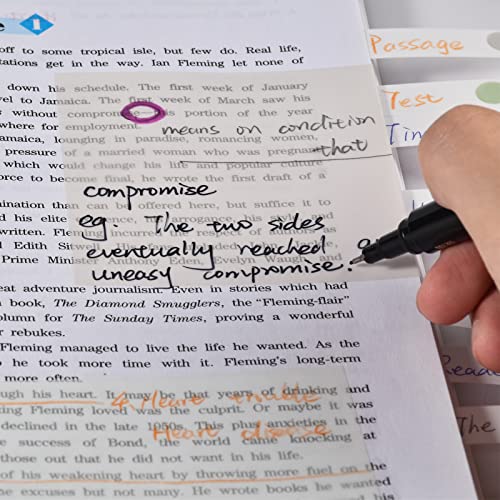 e 1
off to some tropical isle, but few do. Real life,
tations get in the way. Ian Fleming let none of
down his schedule. The first week of January
vel to Jamaica. The first week of March saw his
s without compromise—his portion of the year
where for employment.
means on condition
that
amaica, lounging in paradise, romancing women,
pressure of a married woman who was pregnant
which would change his life and popular culture
orce to become final, he wrote the first draft of a
compromise
eg The two sides
eventually reached a
uneasy compromise.
mination than can be offered here, but suffice it to
d his elite
arrogance, his style and
written. Fleming incurred the respect of
as
d Edith Sitwell.
Prime Minister Anthony Eden, Evelyn Waugh and
eat adventure journalism. Even in stories which had
book, The Diamond Smugglers, the "Fleming-flair"
olumn for The Sunday Times, proving a wonderful
r rebukes.
Fleming managed to live the life he wanted. As the
o he took more time with it. Fleming's long-term
more often.
ugh his heart. It may be that years of drinking and
king Fleming loved was the culprit. Or maybe it was
declined in the late 1950s. This plus anxieties in the
e success of Bond, the world came knocking at
those out that he did not want in his life.
of his weakening heart by throwing more fuel on the
e excuses but not many. He wrote books he wanted
& Heart trouble
Heart disease
Passage
Test
Tim
Reade
The